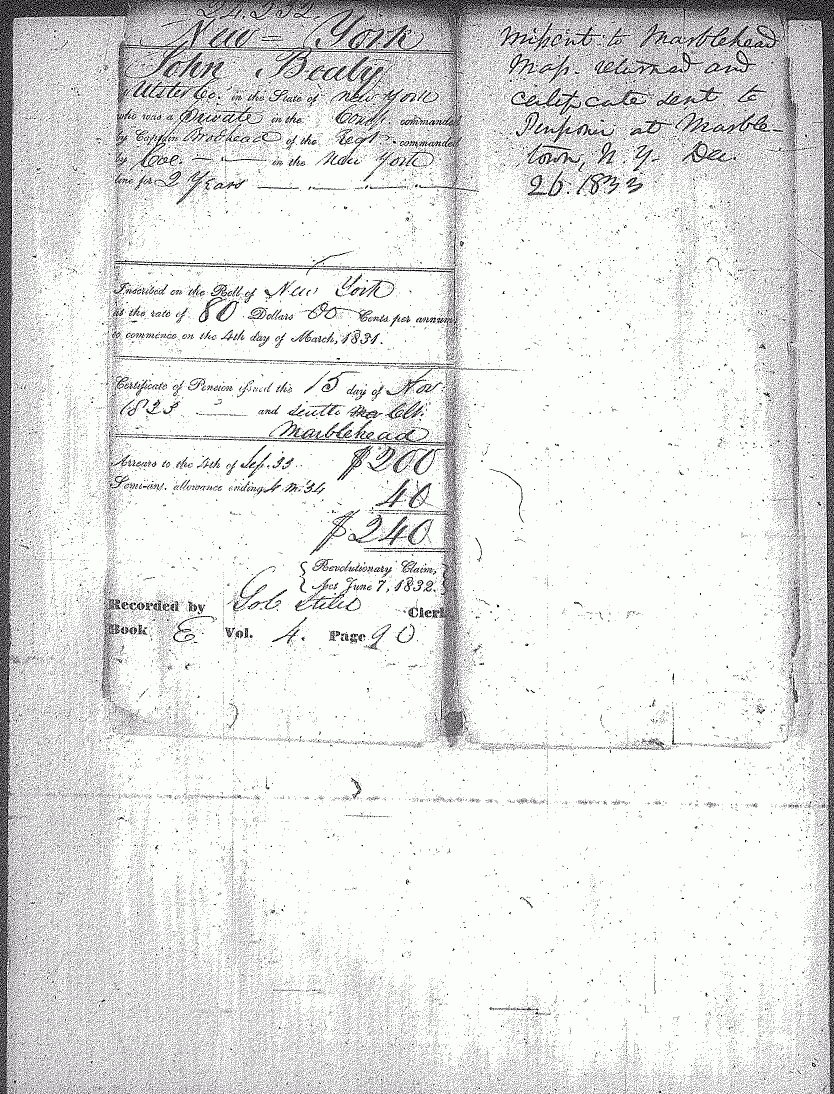 24.232.
New = York
John Beaty
of Ulster Co. in the State of New York
who was a Private in the Comp. commanded
by Captain Brodhead of the Regt. commanded
by Coe. — in the New York
line for 2 Years
Inscribed on the Roll of New York
at the rate of 80 Dollars 00 Cents per annum,
to commence on the 4th day of March, 1831.
Certificate of Pension issued the 15 day of Nov.
1833 — and sent to
Marblehead
Arrears to the 4th of Sep. 33 $200
Semi-anl. allowance ending 4 M. 34, 40
$240
{Revolutionary Claim,
Act June 7, 1832.}
Recorded by Stiles Clerk
Book E Vol. 4. Page 90
Missent to Marblehead
Mass. returned and
certificate sent to
Pensioner at Marble-
town, N. Y. Dec.
26. 1833